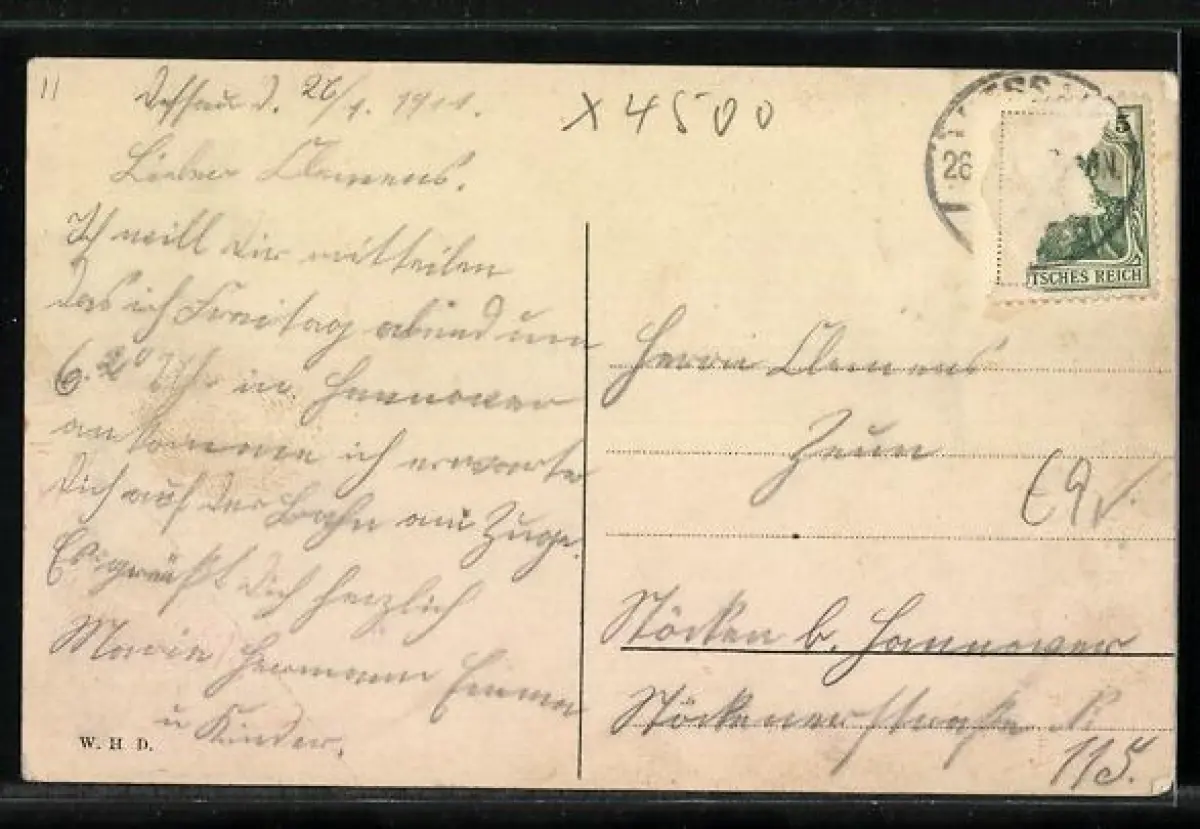 11
Dessau d. 26/1. 1911.
x 4500
Lieber Clemens.
Ich will Dir mitteilen
das ich Freitag abend um
6.20 Uhr in Hannover
ankomme ich erwarte
Dich auf der Bahn am Zuge.
Es grüßt Dich herzlich
Marie Hermann Emma
u Kinder.
W. H D.
DESS
26
N.
5
TSCHES REICH
Herrn Clemens
Zaun
Stöcken b. Hannover
Stöckenerstraße
115.